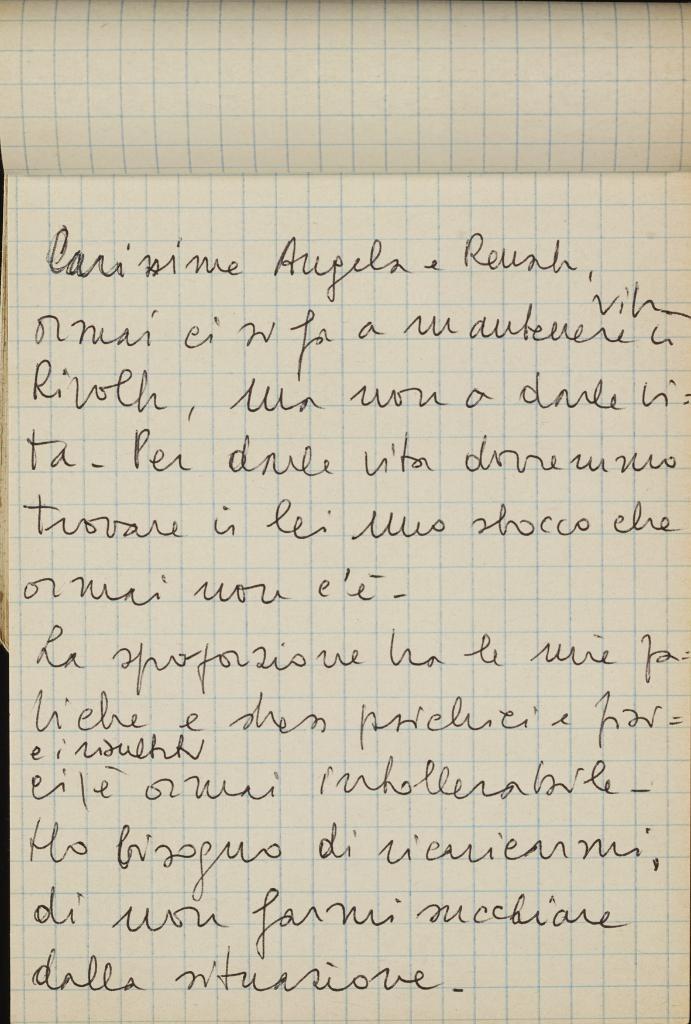 Carissime Angela e Renata,
ormai ci si fa a mantenere in vita
Rivolta, ma non a darle vi=
ta - Per darle vita dovremmo
trovare in lei uno sbocco che
ormai non c'è -
La sproporzione tra le mie fa=
tiche e stress psichici e fisi=
ci e i risultati è ormai intollerabile -
Ho bisogno di ricaricarmi,
di non farmi succhiare
dalla situazione -